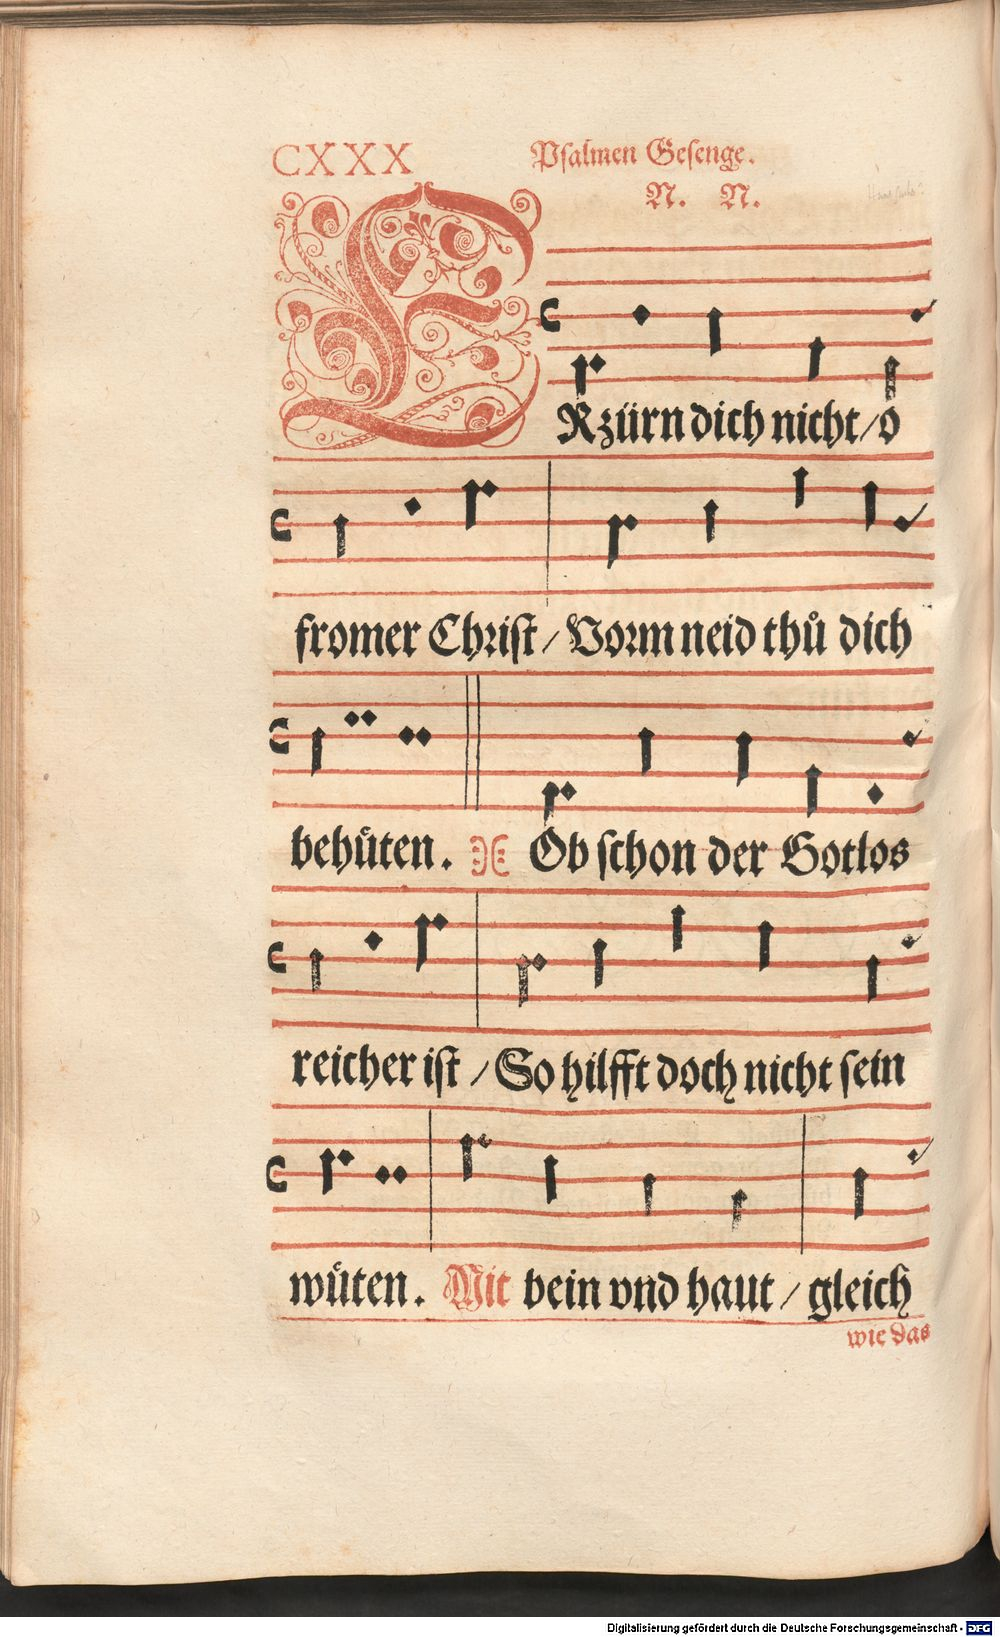 CXXX Psalmen Gesenge.
N. N.
ERzürn dich nicht / o
fromer Christ / Vorm neid thů dich
behüten. Ob schon der Gotlos
reicher ist / So hilfft doch nicht sein
wüten. Mit bein vnd haut / gleich
wie das
Digitalisierung gefördert durch die Deutsche Forschungsgemeinschaft - DFG